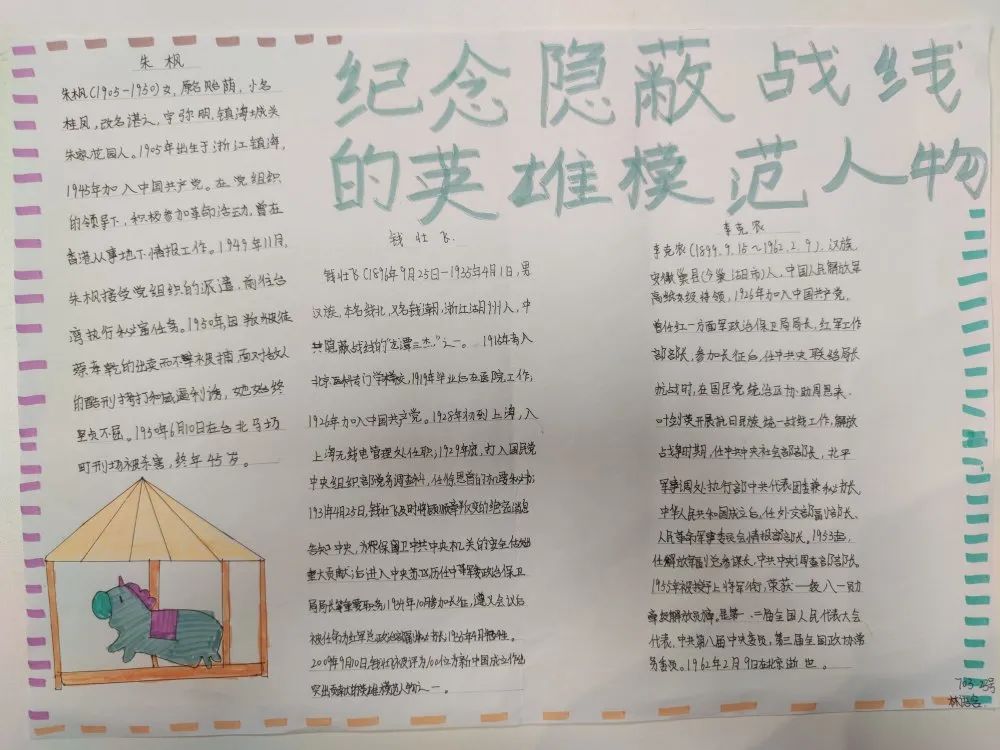 纪念隐蔽战线
的英雄模范人物
朱枫
朱枫(1905-1950)女,原名贻荫,小名
桂凤,改名谌之,字弥明,镇海城关
朱家花园人。1905年出生于浙江镇海,
1945年加入中国共产党。在党组织
的领导下,积极参加革命活动,曾在
香港从事地下情报工作。1949年11月,
朱枫接受党组织的派遣,前往台
湾执行秘密任务。1950年,因叛徒
蔡孝乾的出卖而不幸被捕,面对敌人
的酷刑拷打和威逼利诱,她始终
坚贞不屈。1950年6月10日在台北马场
町刑场被杀害,终年45岁。
钱壮飞.
钱壮飞(1896年9月25日-1935年4月1日,男
汉族,本名钱北,又名钱潮,浙江湖州人,中
共隐蔽战线的"龙潭三杰"之一。1915年考入
北京医科专门学校,1919年毕业后在医院工作,
1926年加入中国共产党。1928年初到上海,入
上海无线电管理处任职;1929年底,打入国民党
中央组织部党务调查科,任徐恩曾的机要秘书;
193年4月25日,钱壮飞及时将顾顺章叛变的绝密消息
告知中央,为保卫中共中央机关的安全作出
重大贡献;后进入中央苏区历任中革军委政治保卫
局局长等重要职务;1934年10月参加长征,遵义会议后
被任命为红军总政治部副秘书长,1935年4月牺牲。
2009年9月10日,钱壮飞被评为100位为新中国成立作出
突出贡献的英雄模范人物之一。
李克农
李克农(1899.9.15~1962.2.9).汉族
安徽巢县(今巢湖市)人,中国人民解放军
高级将领,1926年加入中国共产党,
曾任红一方面军政治保卫局局长,红军工作
部部长,参加长征后,任中共央联络局长
抗战时,在国民党统治区协助周恩来.
叶剑英开展抗日民族统一战线工作,解放
战争时期,任中共中央社会部部长,北平
军事调处执行部中共代表团秘书长,
中华人民共和国成立后,任外交部副部长、
人民革命军事委员会情报部部长。1953年,
任解放军副总参谋长,中共中央调查部部长。
1955年被授予上将军衔,荣获一级八一勋
章级解放勋章。是第一、二届全国人民代表大会
代表,中共第八届中央委员,第三届全国政协常
务委员。1962年2月9日在北京逝世。